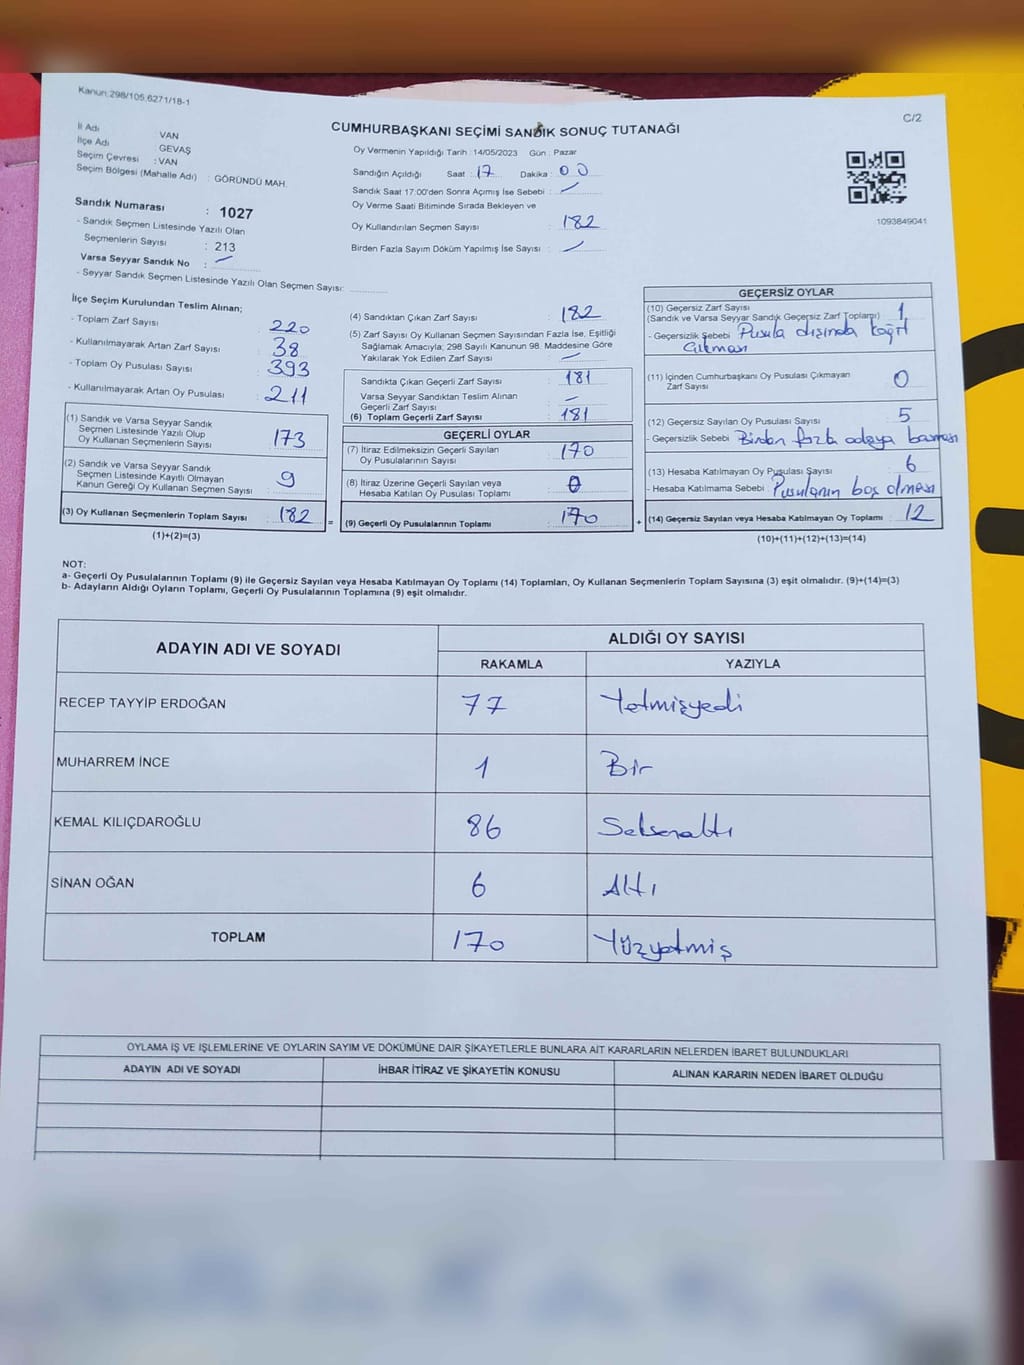 Kanun:298/105;6271/18-1
C/2
CUMHURBAŞKANI SEÇİMİ SANDIK SONUÇ TUTANAĞI
İl Adı : VAN
İlçe Adı : GEVAŞ
Seçim Çevresi : VAN
Seçim Bölgesi (Mahalle Adı) : GÖRÜNDÜ MAH.
Sandık Numarası : 1027
- Sandık Seçmen Listesinde Yazılı Olan
Seçmenlerin Sayısı : 213
Varsa Seyyar Sandık No :
- Seyyar Sandık Seçmen Listesinde Yazılı Olan Seçmen Sayısı:
Oy Vermenin Yapıldığı Tarih : 14/05/2023 Gün : Pazar
Sandığın Açıldığı Saat : 17 Dakika : 00
Sandık Saat 17:00'den Sonra Açılmış İse Sebebi :
Oy Verme Saati Bitiminde Sırada Bekleyen ve
Oy Kullandırılan Seçmen Sayısı : 182
Birden Fazla Sayım Döküm Yapılmış İse Sayısı :
1093849041
İlçe Seçim Kurulundan Teslim Alınan;
- Toplam Zarf Sayısı : 220
- Kullanılmayarak Artan Zarf Sayısı : 38
- Toplam Oy Pusulası Sayısı : 393
- Kullanılmayarak Artan Oy Pusulası : 211
(1) Sandık ve Varsa Seyyar Sandık
Seçmen Listesinde Yazılı Olup
Oy Kullanan Seçmenlerin Sayısı : 173
(2) Sandık ve Varsa Seyyar Sandık
Seçmen Listesinde Kayıtlı Olmayan
Kanun Gereği Oy Kullanan Seçmen Sayısı : 9
(3) Oy Kullanan Seçmenlerin Toplam Sayısı : 182
(1)+(2)=(3)
(4) Sandıktan Çıkan Zarf Sayısı : 182
(5) Zarf Sayısı Oy Kullanan Seçmen Sayısından Fazla İse, Eşitliği
Sağlamak Amacıyla; 298 Sayılı Kanunun 98. Maddesine Göre
Yakılarak Yok Edilen Zarf Sayısı :
Sandıkta Çıkan Geçerli Zarf Sayısı : 181
Varsa Seyyar Sandıktan Teslim Alınan
Geçerli Zarf Sayısı :
(6) Toplam Geçerli Zarf Sayısı : 181
GEÇERLİ OYLAR
(7) İtiraz Edilmeksizin Geçerli Sayılan
Oy Pusulalarının Sayısı : 170
(8) İtiraz Üzerine Geçerli Sayılan veya
Hesaba Katılan Oy Pusulası Toplamı : 0
= (9) Geçerli Oy Pusulalarının Toplamı : 170 +
GEÇERSİZ OYLAR
(10) Geçersiz Zarf Sayısı
(Sandık ve Varsa Seyyar Sandık Geçersiz Zarf Toplamı) : 1
- Geçersizlik Sebebi : Pusula dışında kağıt
çıkması
(11) İçinden Cumhurbaşkanı Oy Pusulası Çıkmayan
Zarf Sayısı : 0
(12) Geçersiz Sayılan Oy Pusulası Sayısı : 5
- Geçersizlik Sebebi : Birden fazla adaya basması
(13) Hesaba Katılmayan Oy Pusulası Sayısı : 6
- Hesaba Katılmama Sebebi : Pusulanın boş olması
(14) Geçersiz Sayılan veya Hesaba Katılmayan Oy Toplamı : 12
(10)+(11)+(12)+(13)=(14)
NOT:
a- Geçerli Oy Pusulalarının Toplamı (9) ile Geçersiz Sayılan veya Hesaba Katılmayan Oy Toplamı (14) Toplamları, Oy Kullanan Seçmenlerin Toplam Sayısına (3) eşit olmalıdır. (9)+(14)=(3)
b- Adayların Aldığı Oyların Toplamı, Geçerli Oy Pusulalarının Toplamına (9) eşit olmalıdır.
ADAYIN ADI VE SOYADI
ALDIĞI OY SAYISI
RAKAMLA YAZIYLA
RECEP TAYYİP ERDOĞAN 77 Yetmişyedi
MUHARREM İNCE 1 Bir
KEMAL KILIÇDAROĞLU 86 Seksenaltı
SİNAN OĞAN 6 Altı
TOPLAM 170 Yüzyetmiş
OYLAMA İŞ VE İŞLEMLERİNE VE OYLARIN SAYIM VE DÖKÜMÜNE DAİR ŞİKAYETLERLE BUNLARA AİT KARARLARIN NELERDEN İBARET BULUNDUKLARI
ADAYIN ADI VE SOYADI İHBAR İTİRAZ VE ŞİKAYETİN KONUSU ALINAN KARARIN NEDEN İBARET OLDUĞU